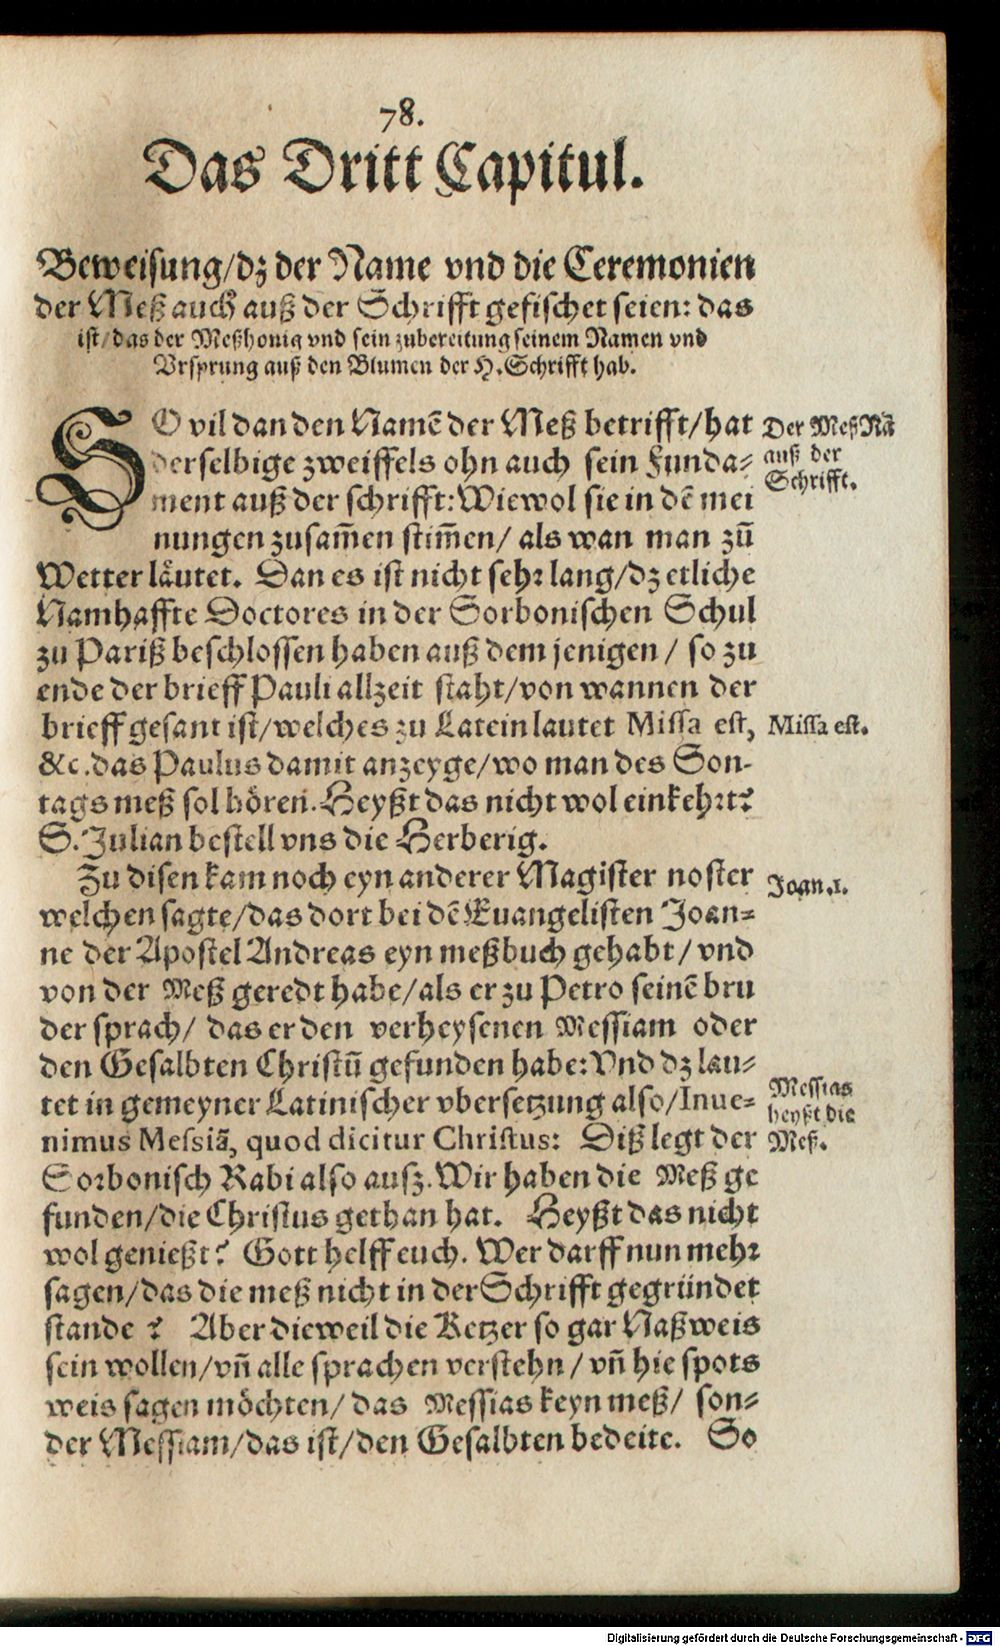 78.
Das Dritt Capitul.
Beweisung/dz der Name vnd die Ceremonien
der Meß auch auß der Schrifft gefischet seien: das
ist/das der Meßhonig vnd sein zubereitung seinem Namen vnd
Vrsprung auß den Blumen der H. Schrifft hab.
SO vil dan den Namē der Meß betrifft/hat
derselbige zweiffels ohn auch sein Funda-
ment auß der schrifft: Wiewol sie in dē mei
nungen zusam̃en stim̃en/ als wan man zū
Wetter läutet. Dan es ist nicht sehr lang/dz etliche
Namhaffte Doctores in der Sorbonischen Schul
zu Pariß beschlossen haben auß dem jenigen / so zu
ende der brieff Pauli allzeit staht/von wannen der
brieff gesant ist/welches zu Latein lautet Missa est,
&c. das Paulus damit anzeyge/wo man des Son-
tags meß sol hören. Heyßt das nicht wol einkehrt?
S. Julian bestell vns die Herberig.
Zu disen kam noch eyn anderer Magister noster
welchen sagte/das dort bei dē Euangelisten Joan-
ne der Apostel Andreas eyn meßbuch gehabt / vnd
von der Meß geredt habe/als er zu Petro seinē bru
der sprach/ das er den verheysenen Messiam oder
den Gesalbten Christū gefunden habe: Vnd dz lau-
tet in gemeyner Latinischer vbersetzung also/Inue-
nimus Messiã, quod dicitur Christus: Diß legt der
Sorbonisch Rabi also ausz. Wir haben die Meß ge
funden/die Christus gethan hat. Heyßt das nicht
wol genießt? Gott helff euch. Wer darff nun mehr
sagen/das die meß nicht in der Schrifft gegründet
stande ? Aber dieweil die Ketzer so gar Naßweis
sein wollen/vñ alle sprachen verstehn / vñ hie spots
weis sagen möchten/ das Messias keyn meß/ son-
der Messiam/das ist/den Gesalbten bedeite. So
Der Meß Nã
auß der
Schrifft.
Missa est.
Joan. 1.
Messias
heyßt die
Meß.
Digitalisierung gefördert durch die Deutsche Forschungsgemeinschaft - DFG